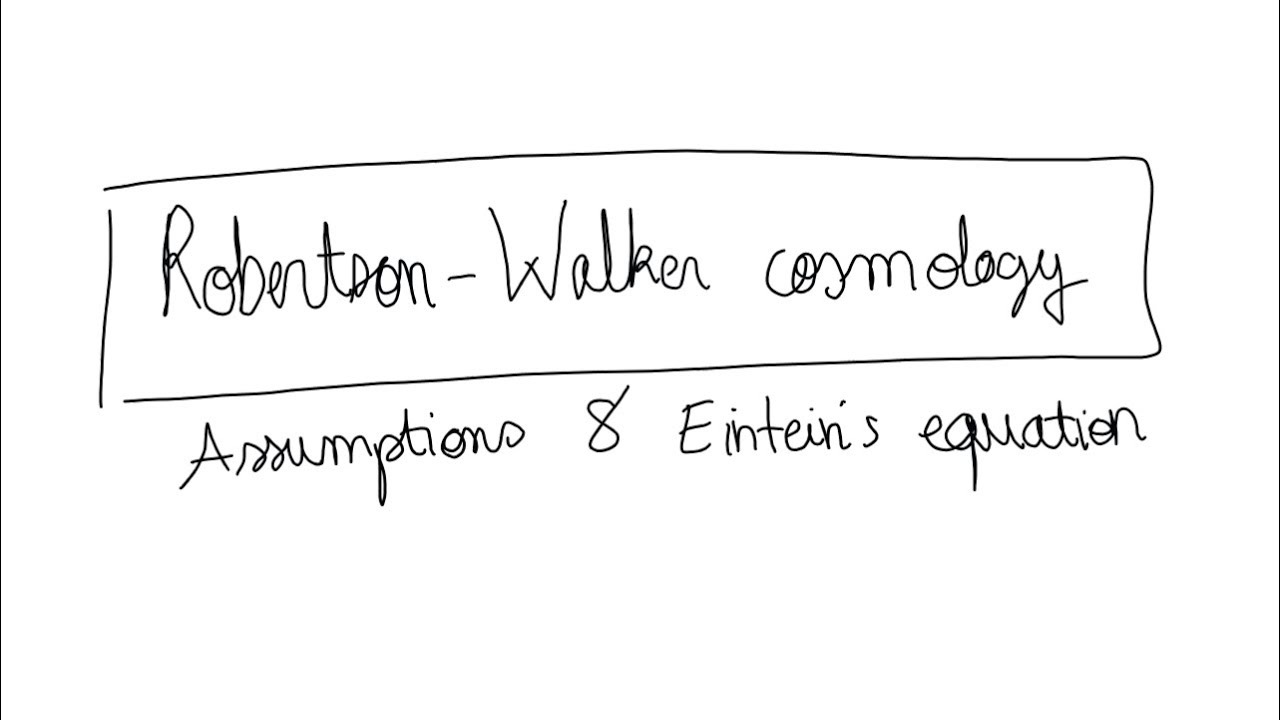 Robertson-Walker cosmology
Assumptions & Eintein's equation